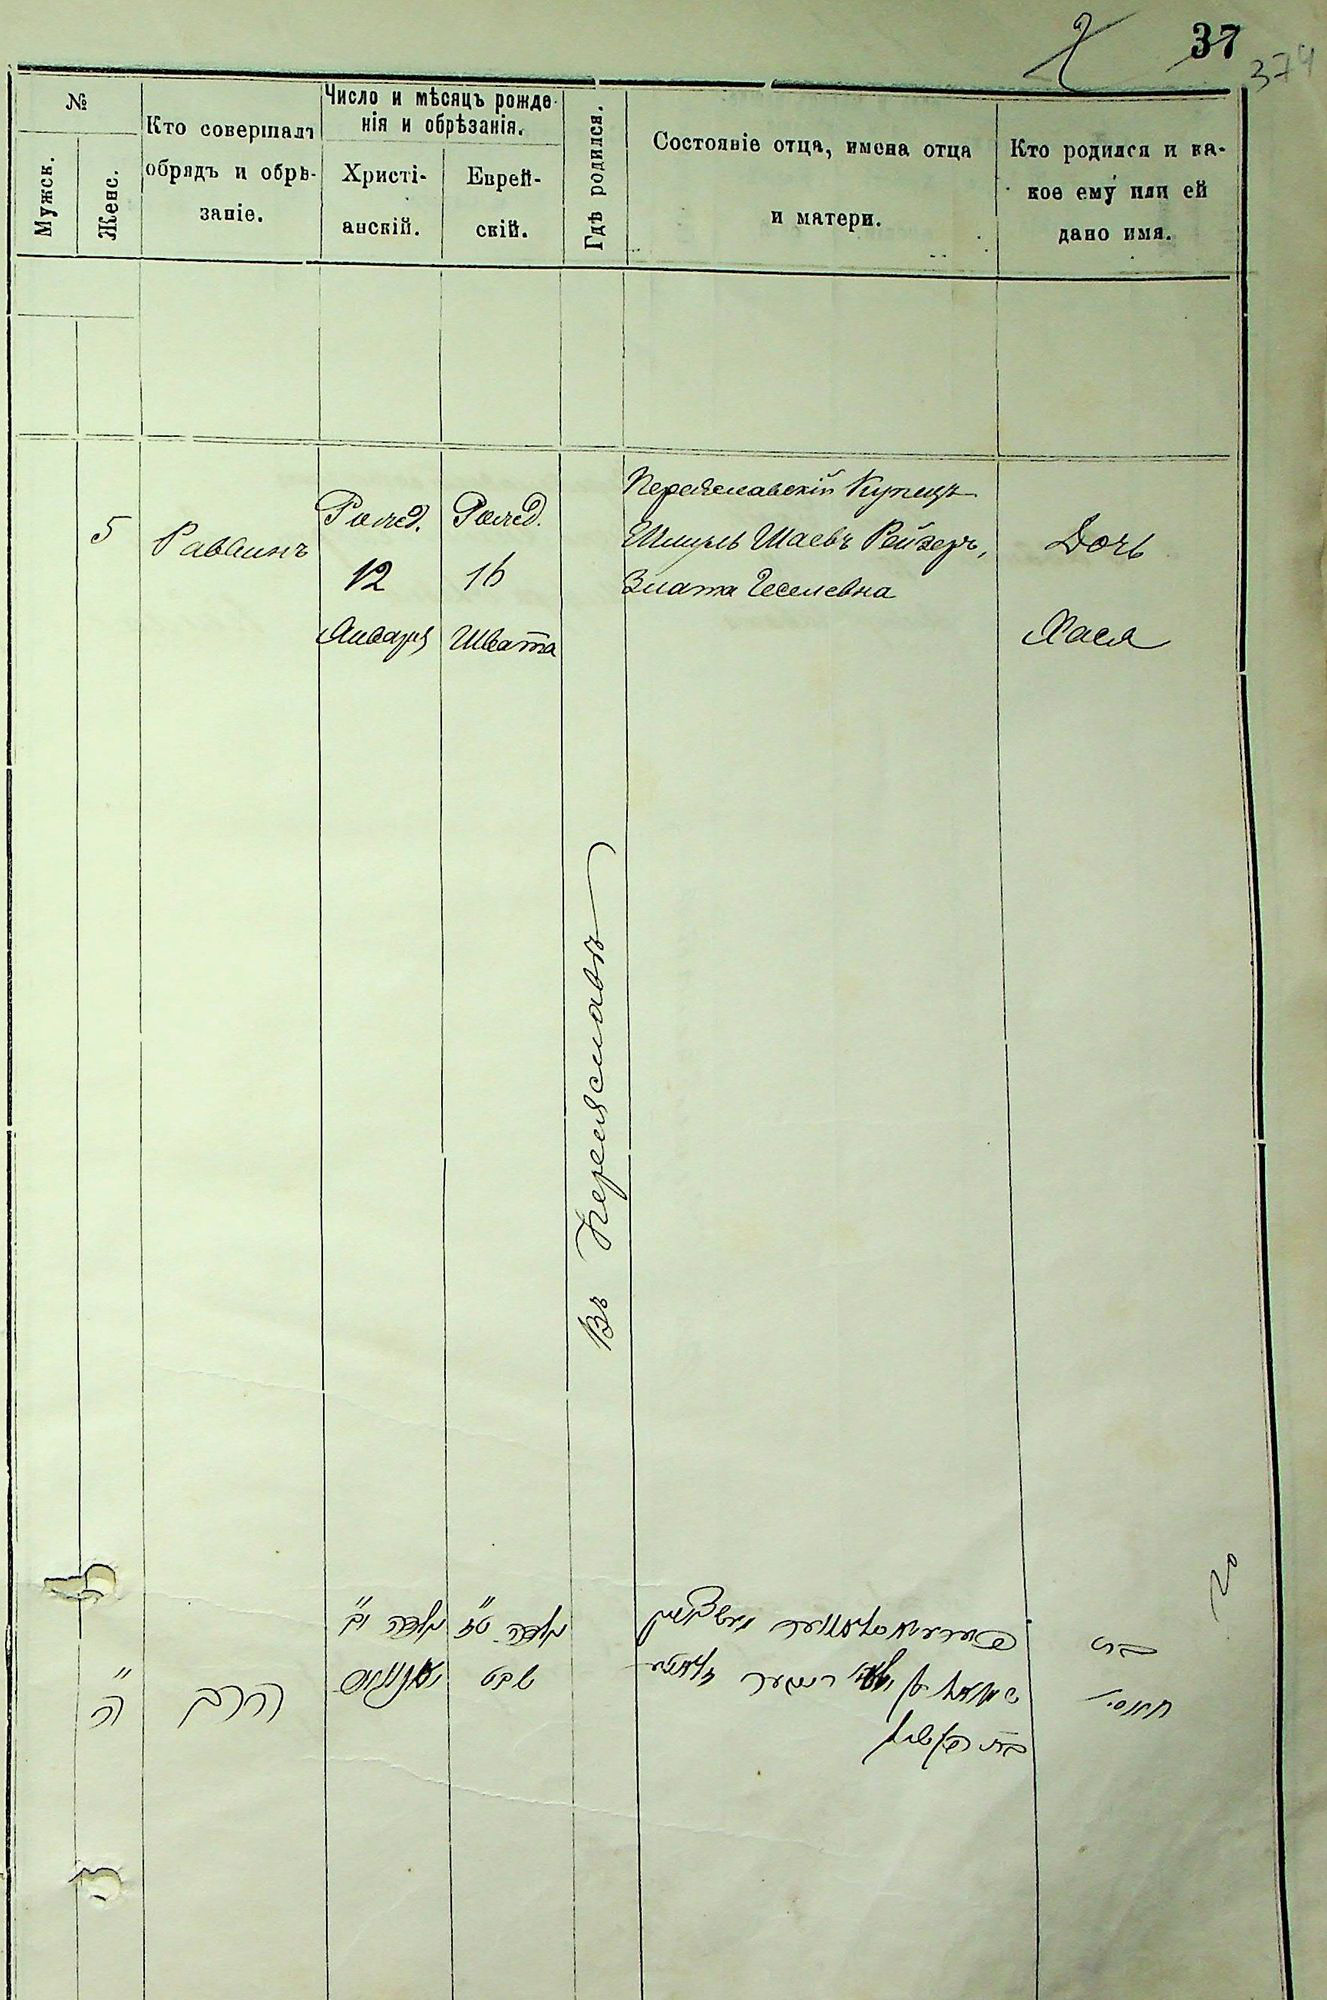 37
374
№
Мужск.
Женс.
Кто совершалъ
обрядъ и обрѣ-
заніе.
Число и мѣсяцъ рожде-
нія и обрѣзанія.
Христі-
анскій.
Еврей-
скій.
Гдѣ родился.
Состояніе отца, имена отца
и матери.
Кто родился и ка-
кое ему или ей
дано имя.
5
Раввинъ
Рожд.
12
Января
Рожд.
16
Швата
Въ Переяславѣ
Переяславскій Купецъ
Шмуль Шаевъ Рейзеръ,
Злата Геселевна
Дочь
Хася
ה"
הרב
נולדה יב"
נולדה טז"
שבט
בת
חאסי